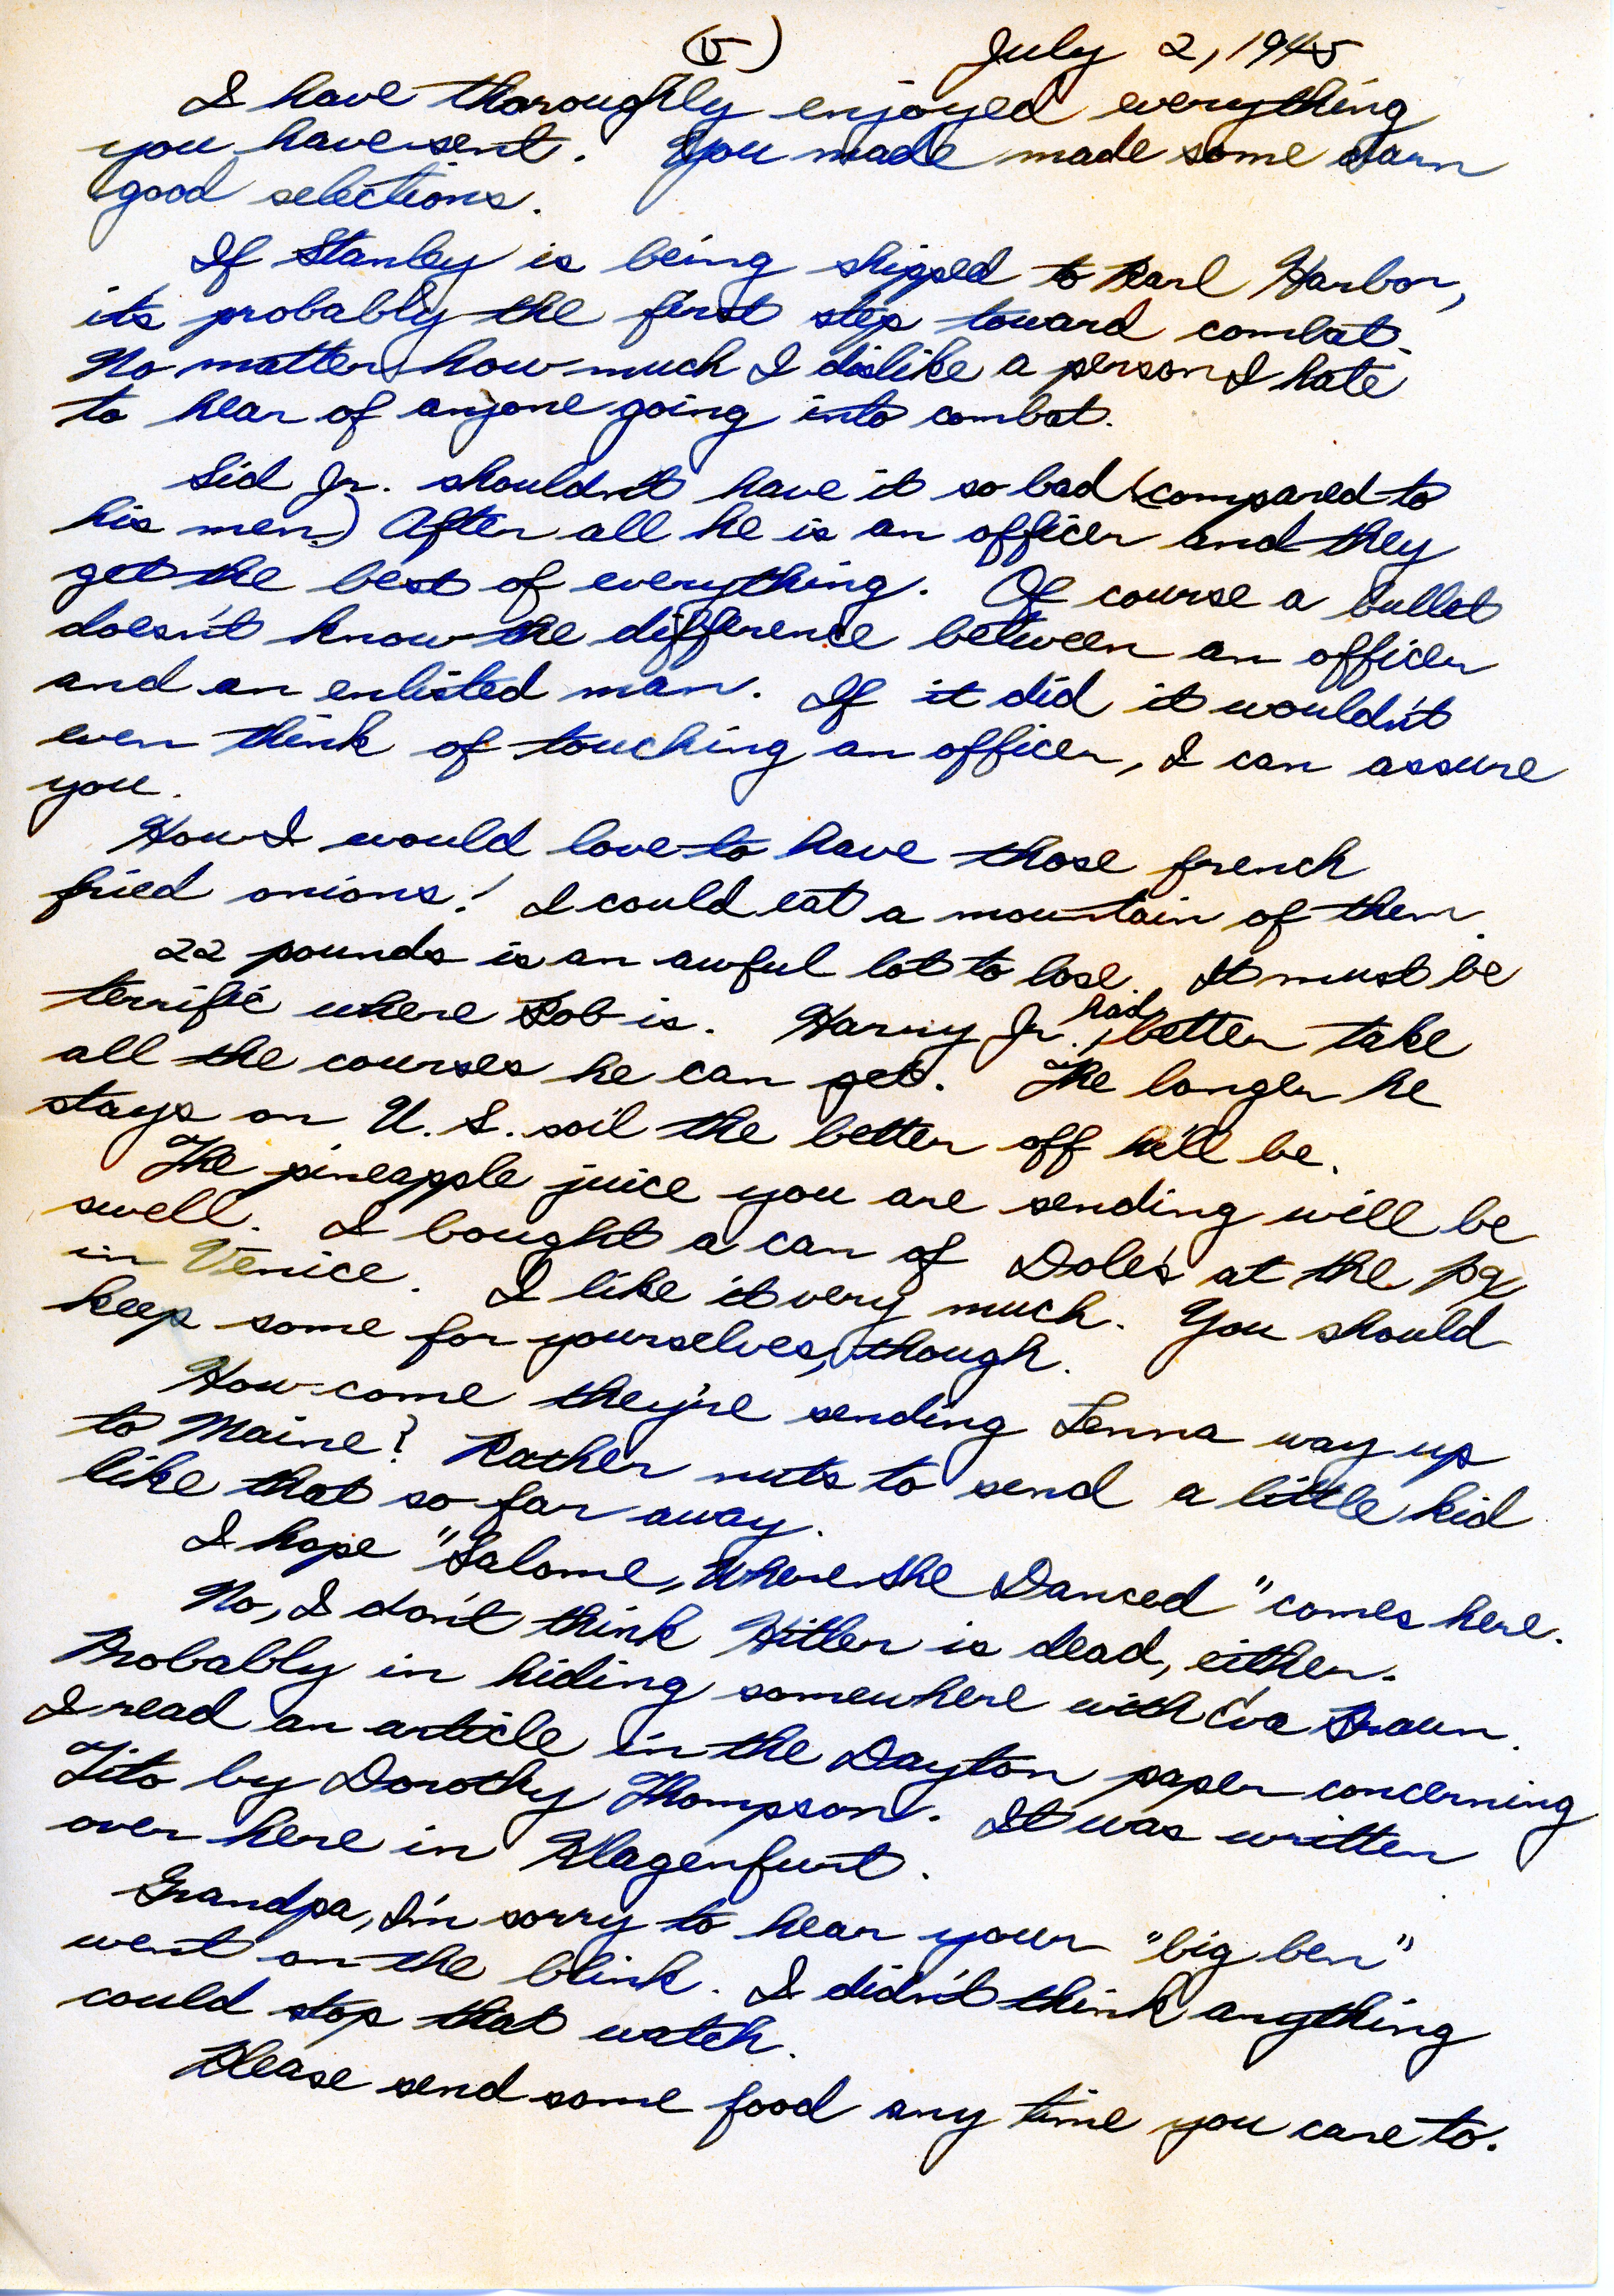 (5) July 2, 1945
I have thoroughly enjoyed everything
you have sent. You made made some darn
good selections.
If Stanley is being shipped to Pearl Harbor,
its probably the first step toward combat.
No matter how much I dislike a person I hate
to hear of anyone going into combat.
Sid Jr. shouldn't have it so bad (compared to
his men.) After all he is an officer and they
get the best of everything. Of course a bullet
doesn't know the difference between an officer
and an enlisted man. If it did it wouldn't
even think of touching an officer, I can assure
you.
How I would love to have those french
fried onions! I could eat a mountain of them.
22 pounds is an awful lot to lose. It must be
terrific where Bob is. Harry Jr. had better take
all the courses he can get. The longer he
stays on U.S. soil the better off he'll be.
The pineapple juice you are sending will be
swell. I bought a can of Dole's at the px
in Venice. I like it very much. You should
keep some for yourselves, though.
How come they're sending Lenna way up
to Maine? Rather nuts to send a little kid
like that so far away.
I hope "Salome, Where She Danced" comes here.
No, I don't think Hitler is dead, either.
Probably in hiding somewhere with Eva Braun.
I read an article in the Dayton paper concerning
Tito by Dorothy Thompson. It was written
over here in Klagenfurt.
Grandpa, I'm sorry to hear your "big ben"
went on the blink. I didn't think anything
could stop that watch.
Please send some food any time you care to.